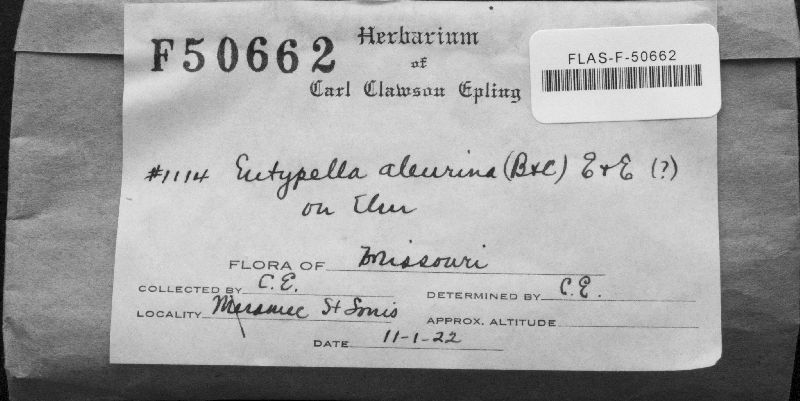 F50662
Herbarium
of
Carl Clawson Epling
FLAS-F-50662
#1114 Eutypella aleurina (B&C) E&E (?)
on Elm
FLORA OF Missouri
COLLECTED BY C.E.
DETERMINED BY C.E.
LOCALITY Meramec St Louis
APPROX. ALTITUDE
DATE 11-1-22